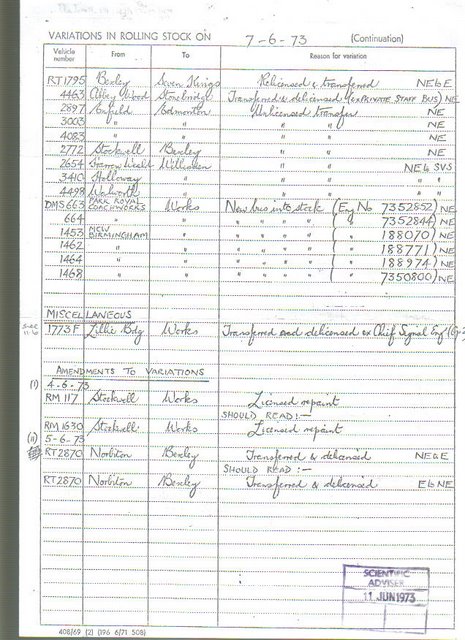 VARIATIONS IN ROLLING STOCK ON 7-6-73 (Continuation)
Vehicle number From To Reason for variation
RT1795 Bexley Seven Kings Relicensed & transferred NE6E
4463 Abbey Wood Stonebridge Transferred & delicensed (ex STAFF BUS) NE
2897 Enfield Edmonton Unlicensed transfer NE
3003 " " " " NE
4083 " " " " NE
2772 Stockwell Bexley " " NE
2654 Harrow Weald Willesden " " NE6 SVS
3410 Holloway " " " " "
4498 Walworth " " " " "
DMS663 PARK ROYAL COACHWORKS Works New bus into stock (Eng No 7352852) NE
664 " " " " " " ( " 7352844) NE
1453 NEW BIRMINGHAM " " " " " ( " 188070) NE
1462 " " " " " " ( " 188771) NE
1464 " " " " " " ( " 188974) NE
1468 " " " " " " ( " 7350800) NE
MISCELLANEOUS
1773F Lillie Bdg Works Transferred and delicensed ex Chief Signal Eng
AMENDMENTS TO VARIATIONS
(i) 4-6-73
RM 117 Stockwell Works Licensed repaint
SHOULD READ:-
RM 1630 Stockwell Works Licensed repaint
(ii) 5-6-73
RT2870 Norbiton Bexley Transferred & delicensed NE6E
SHOULD READ:-
RT2870 Norbiton Bexley Transferred & delicensed E6NE
SCIENTIFIC
ADVISER
11 JUN 1973
408/69 (2) (196 6/71 508)